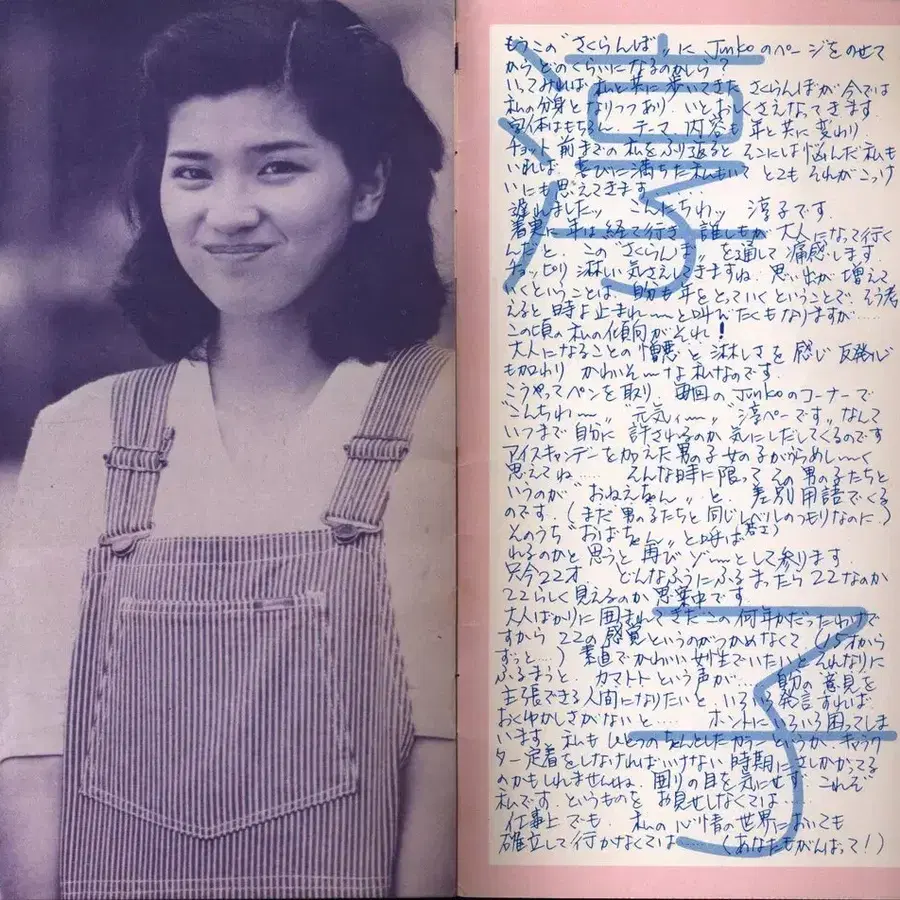 もうこの〝さくらんぼ〟に Junkoのページをのせて
からどのくらいになるのかしら?
いってみれば私と共に歩いてきたさくらんぼが今では
私の分身となりつつあり、いとおしくさえなってきます。
字体はもちろん、テーマ、内容も年と共に変わり、
チョット前までの私をふり返ると、そこには悩んだ私も
いれば、喜びに満ちた私もいて とても それがこっけ
いにも思えてきます……
遅れました〟 こんにちわッ 淳子です。
着実に年は経て行き、誰しもが大人になって行く
んだと、この〝さくらんぼ〟を通して痛感します。
チョッピリ淋しい気さえしてきますね。思い出が増えて
いくということは、自分も年をとっていくということで、そう考
えると 時よ止まれ〜〜と叫びたくもなりますが……
この頃の私の傾向がそれ!
大人になることの憎悪と淋しさを感じ 反発心
も加わり かわいそ〜な私なのです。
こうやってペンを取り、毎回のJunkoのコーナーで
〝こんちわ〜〟〝元気ィ〜〟〝淳ペーです〟なんて
いつまで自分に許されるのか気にしだしてくるのです
アイスキャンデーをかかえた男の子女の子がうらめし〜く
思えてね…… そんな時に限ってその男の子たちと
いうのが〝おねえちゃん〟と、差別用語でくる
のです。(まだ男の子たちと同じレベルのつもりなのに)
そのうち〝おばちゃん〟と呼ば
れるのかと思うと再びゾ〜〜として参ります。
只今22才。 どんなふうにふるまったら22なのか
22らしく見えるのか思案中です。
大人ばかりに囲まれてきたこの何年かだったわけで
すから 22の感覚というのがつかめなくて(15才から
ずっと…) 素直でかわいい女性でいたいとそれなりに
ふるまうと、カマトトという声が…… 自分の意見を
主張できる人間になりたいと、いろいろ発言すれば、
おくゆかしさがないと…… ホントにいろいろ困ってしま
います。私もひとつのちゃんとしたカラーというか、キャラク
ター定着をしなければいけない時期にさしかかってる
のかもしれませんね。囲りの目を気にせず、これぞ
私です。というものをお見せしなくては……
仕事上でも、私の心情の世界においても
確立して行かなくては……(あなたもがんばって!)
淳子